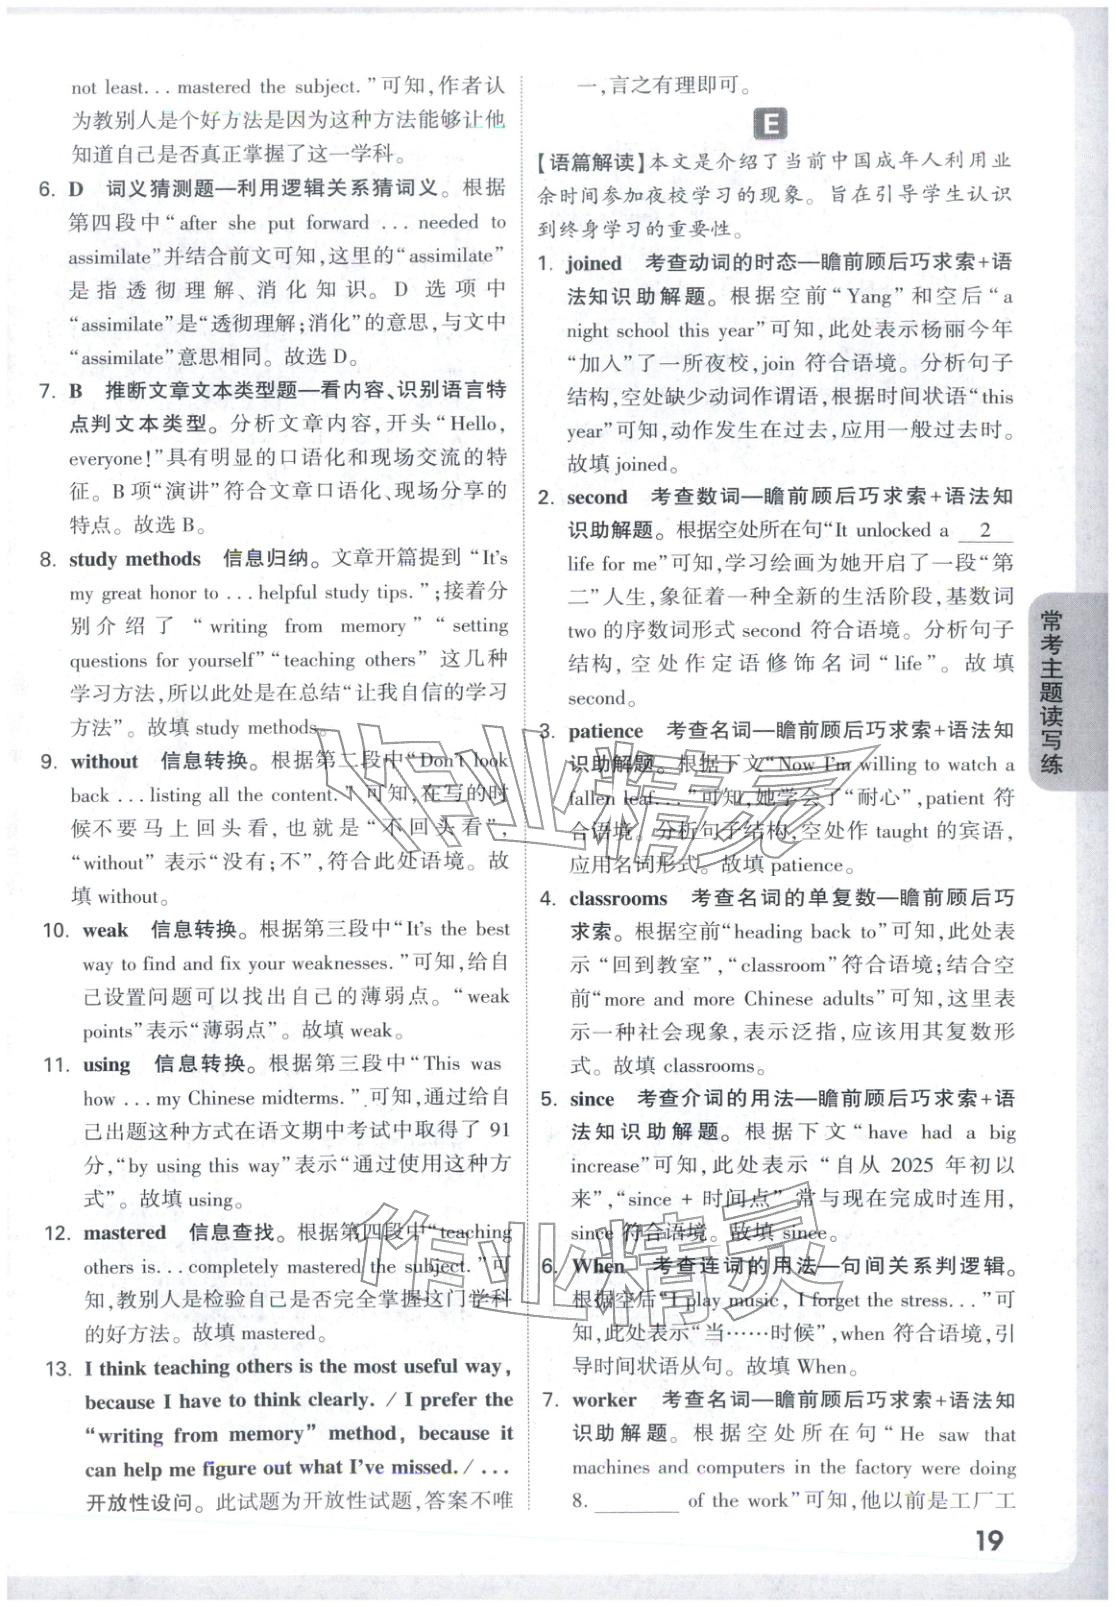 not least... mastered the subject."可知,作者认
为教别人是个好方法是因为这种方法能够让他
知道自己是否真正掌握了这一学科。
6. D 词义猜测题—利用逻辑关系猜词义。根据
第四段中“after she put forward ... needed to
assimilate”并结合前文可知,这里的“assimilate”
是指透彻理解、消化知识。D 选项中
“assimilate”是“透彻理解;消化”的意思,与文中
“assimilate”意思相同。故选 D。
7. B 推断文章文本类型题—看内容、识别语言特
点判文本类型。分析文章内容,开头“Hello,
everyone!”具有明显的口语化和现场交流的特
征。B 项“演讲”符合文章口语化、现场分享的
特点。故选 B。
8. study methods 信息归纳。文章开篇提到“It's
my great honor to ... helpful study tips.”;接着分
别介绍了“writing from memory”“setting
questions for yourself”“teaching others”这几种
学习方法,所以此处是在总结“让我自信的学习
方法”。故填 study methods。
9. without 信息转换。根据第二段中“Don't look
back ... listing all the content.”可知,在写的时
候不要马上回头看,也就是“不回头看”,
“without”表示“没有;不”,符合此处语境。故
填 without。
10. weak 信息转换。根据第三段中“It's the best
way to find and fix your weaknesses.”可知,给自
己设置问题可以找出自己的薄弱点。“weak
points”表示“薄弱点”。故填 weak。
11. using 信息转换。根据第三段中“This was
how ... my Chinese midterms.”可知,通过给自
己出题这种方式在语文期中考试中取得了 91
分,“by using this way”表示“通过使用这种方
式”。故填 using。
12. mastered 信息查找。根据第四段中“teaching
others is... completely mastered the subject.”可
知,教别人是检验自己是否完全掌握这门学科
的好方法。故填 mastered。
13. I think teaching others is the most useful way,
because I have to think clearly. / I prefer the
“writing from memory” method, because it
can help me figure out what I've missed. / ...
开放性设问。此试题为开放性试题,答案不唯
一,言之有理即可。
E
【语篇解读】本文是介绍了当前中国成年人利用业
余时间参加夜校学习的现象。旨在引导学生认识
到终身学习的重要性。
1. joined 考查动词的时态—瞻前顾后巧求索+语
法知识助解题。根据空前“Yang”和空后“a
night school this year”可知,此处表示杨丽今年
“加入”了一所夜校,join 符合语境。分析句子
结构,空处缺少动词作谓语,根据时间状语“this
year”可知,动作发生在过去,应用一般过去时。
故填 joined。
2. second 考查数词—瞻前顾后巧求索+语法知
识助解题。根据空处所在句“It unlocked a 2
life for me”可知,学习绘画为她开启了一段“第
二”人生,象征着一种全新的生活阶段,基数词
two 的序数词形式 second 符合语境。分析句子
结构,空处作定语修饰名词“life”。故填
second。
3. patience 考查名词—瞻前顾后巧求索+语法知
识助解题。根据下文“Now I'm willing to watch a
fallen leaf...”可知,她学会了“耐心”,patient 符
合语境。分析句子结构,空处作 taught 的宾语,
应用名词形式。故填 patience。
4. classrooms 考查名词的单复数—瞻前顾后巧
求索。根据空前“heading back to”可知,此处表
示“回到教室”,“classroom”符合语境;结合空
前“more and more Chinese adults”可知,这里表
示一种社会现象,表示泛指,应该用其复数形
式。故填 classrooms。
5. since 考查介词的用法—瞻前顾后巧求索+语
法知识助解题。根据下文“have had a big
increase”可知,此处表示“自从 2025 年初以
来”,“since + 时间点”常与现在完成时连用,
since 符合语境。故填 since。
6. When 考查连词的用法—句间关系判逻辑。
根据空后“I play music, I forget the stress...”可
知,此处表示“当……时候”,when 符合语境,引
导时间状语从句。故填 When。
7. worker 考查名词—瞻前顾后巧求索+语法知
识助解题。根据空处所在句“He saw that
machines and computers in the factory were doing
8. ______ of the work”可知,他以前是工厂工
常考主题读写练
19
作业精灵
作业精灵